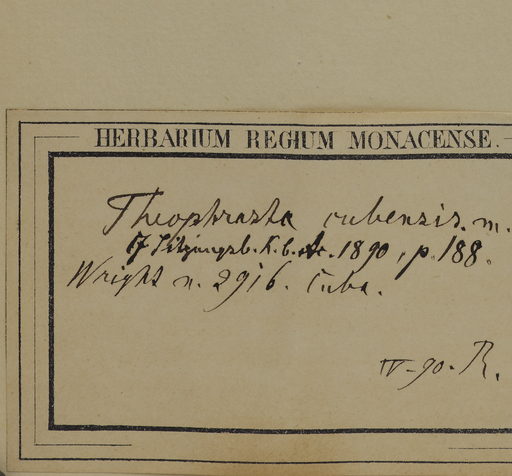 HERBARIUM REGIUM MONACENSE.
Theophrasta cubensis. m.
Sitzungsb. K. b. Ak. 1890, p. 188.
Wright n. 2916. Cuba.
IV-90. R.